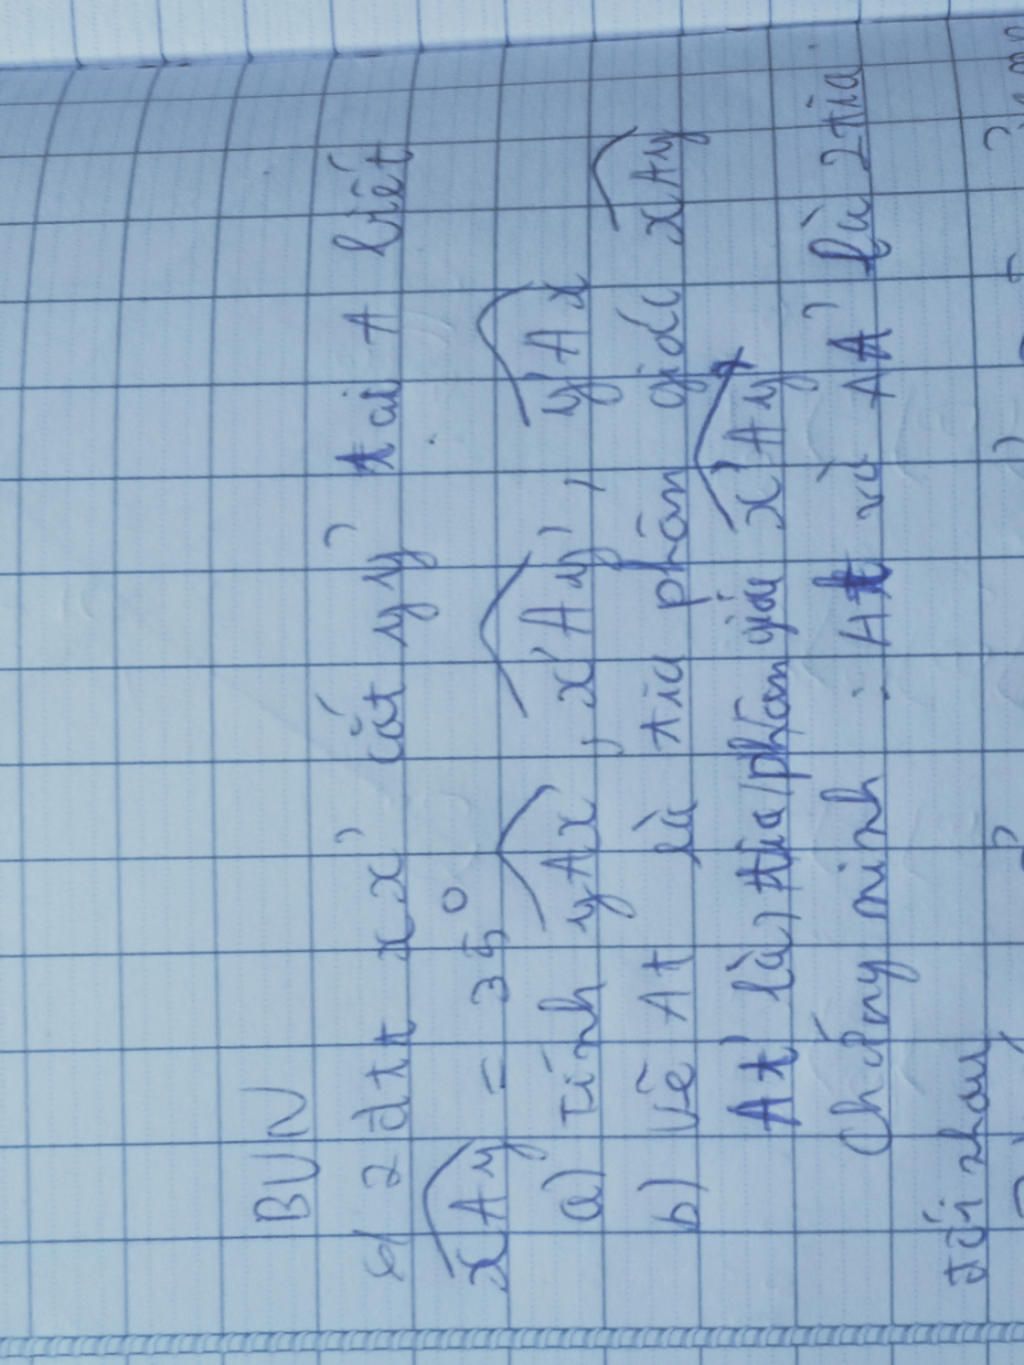 BUN
2 đtt xx' cắt yy' tại A biết
xAy = 35°
a) Tính yAx', x'Ay', y'Ax
b) Vẽ At là tia phân giác xAy
At' là tia phân giác x'Ay'
Chứng minh : At và AA' là 2 tia
đối nhau